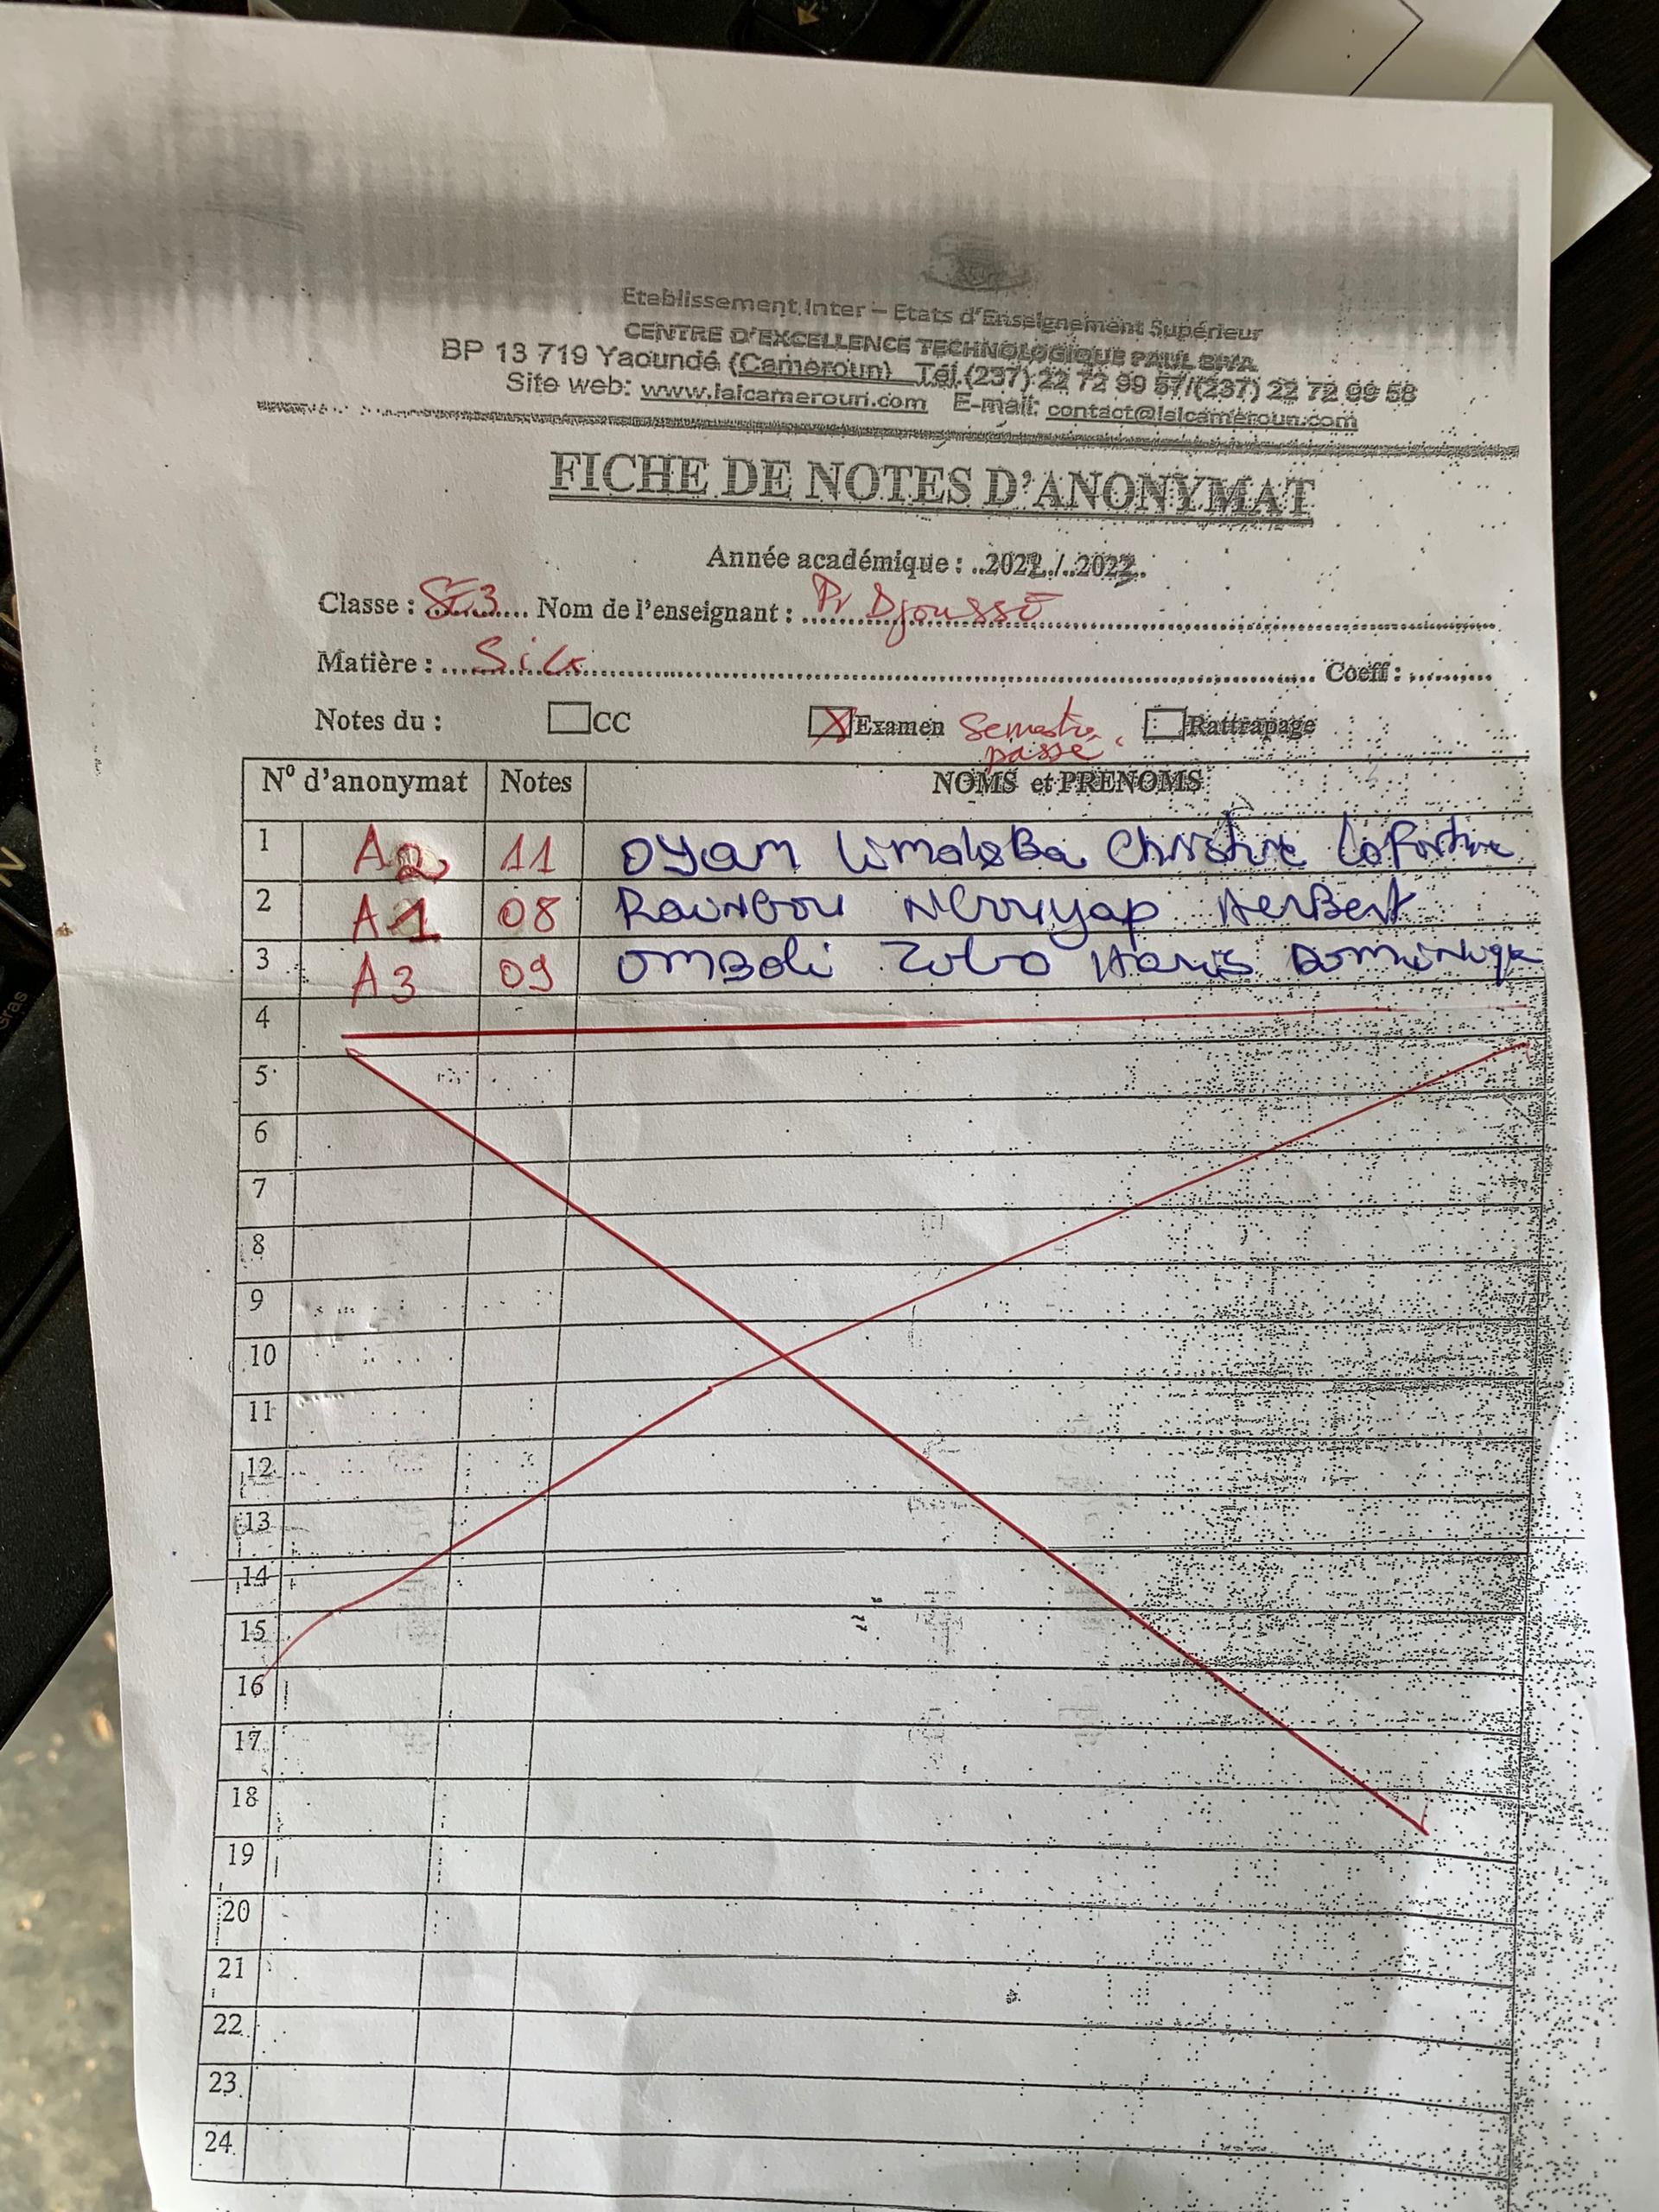 Etablissement Inter – Etats d'Enseignement Supérieur
CENTRE D'EXCELLENCE TECHNOLOGIQUE PAUL BIYA
BP 13 719 Yaoundé (Cameroun) Tél.(237) 22 72 99 57/(237) 22 72 99 58
Site web: www.iaicameroun.com E-mail: contact@iaicameroun.com
FICHE DE NOTES D'ANONYMAT
Année académique : ..2022./..2023..
Classe : SE3 Nom de l'enseignant : Pr Djoussé
Matière : Coeff :
Notes du : CC Examen Semestre passé Rattrapage
N° d'anonymat Notes NOMS et PRENOMS
1 A2 11 OYOM Christine
2 A1 08 HerBert
3 A3 09 OMBOLi Haris
4
5
6
7
8
9
10
11
12
13
14
15
16
17
18
19
20
21
22
23
24